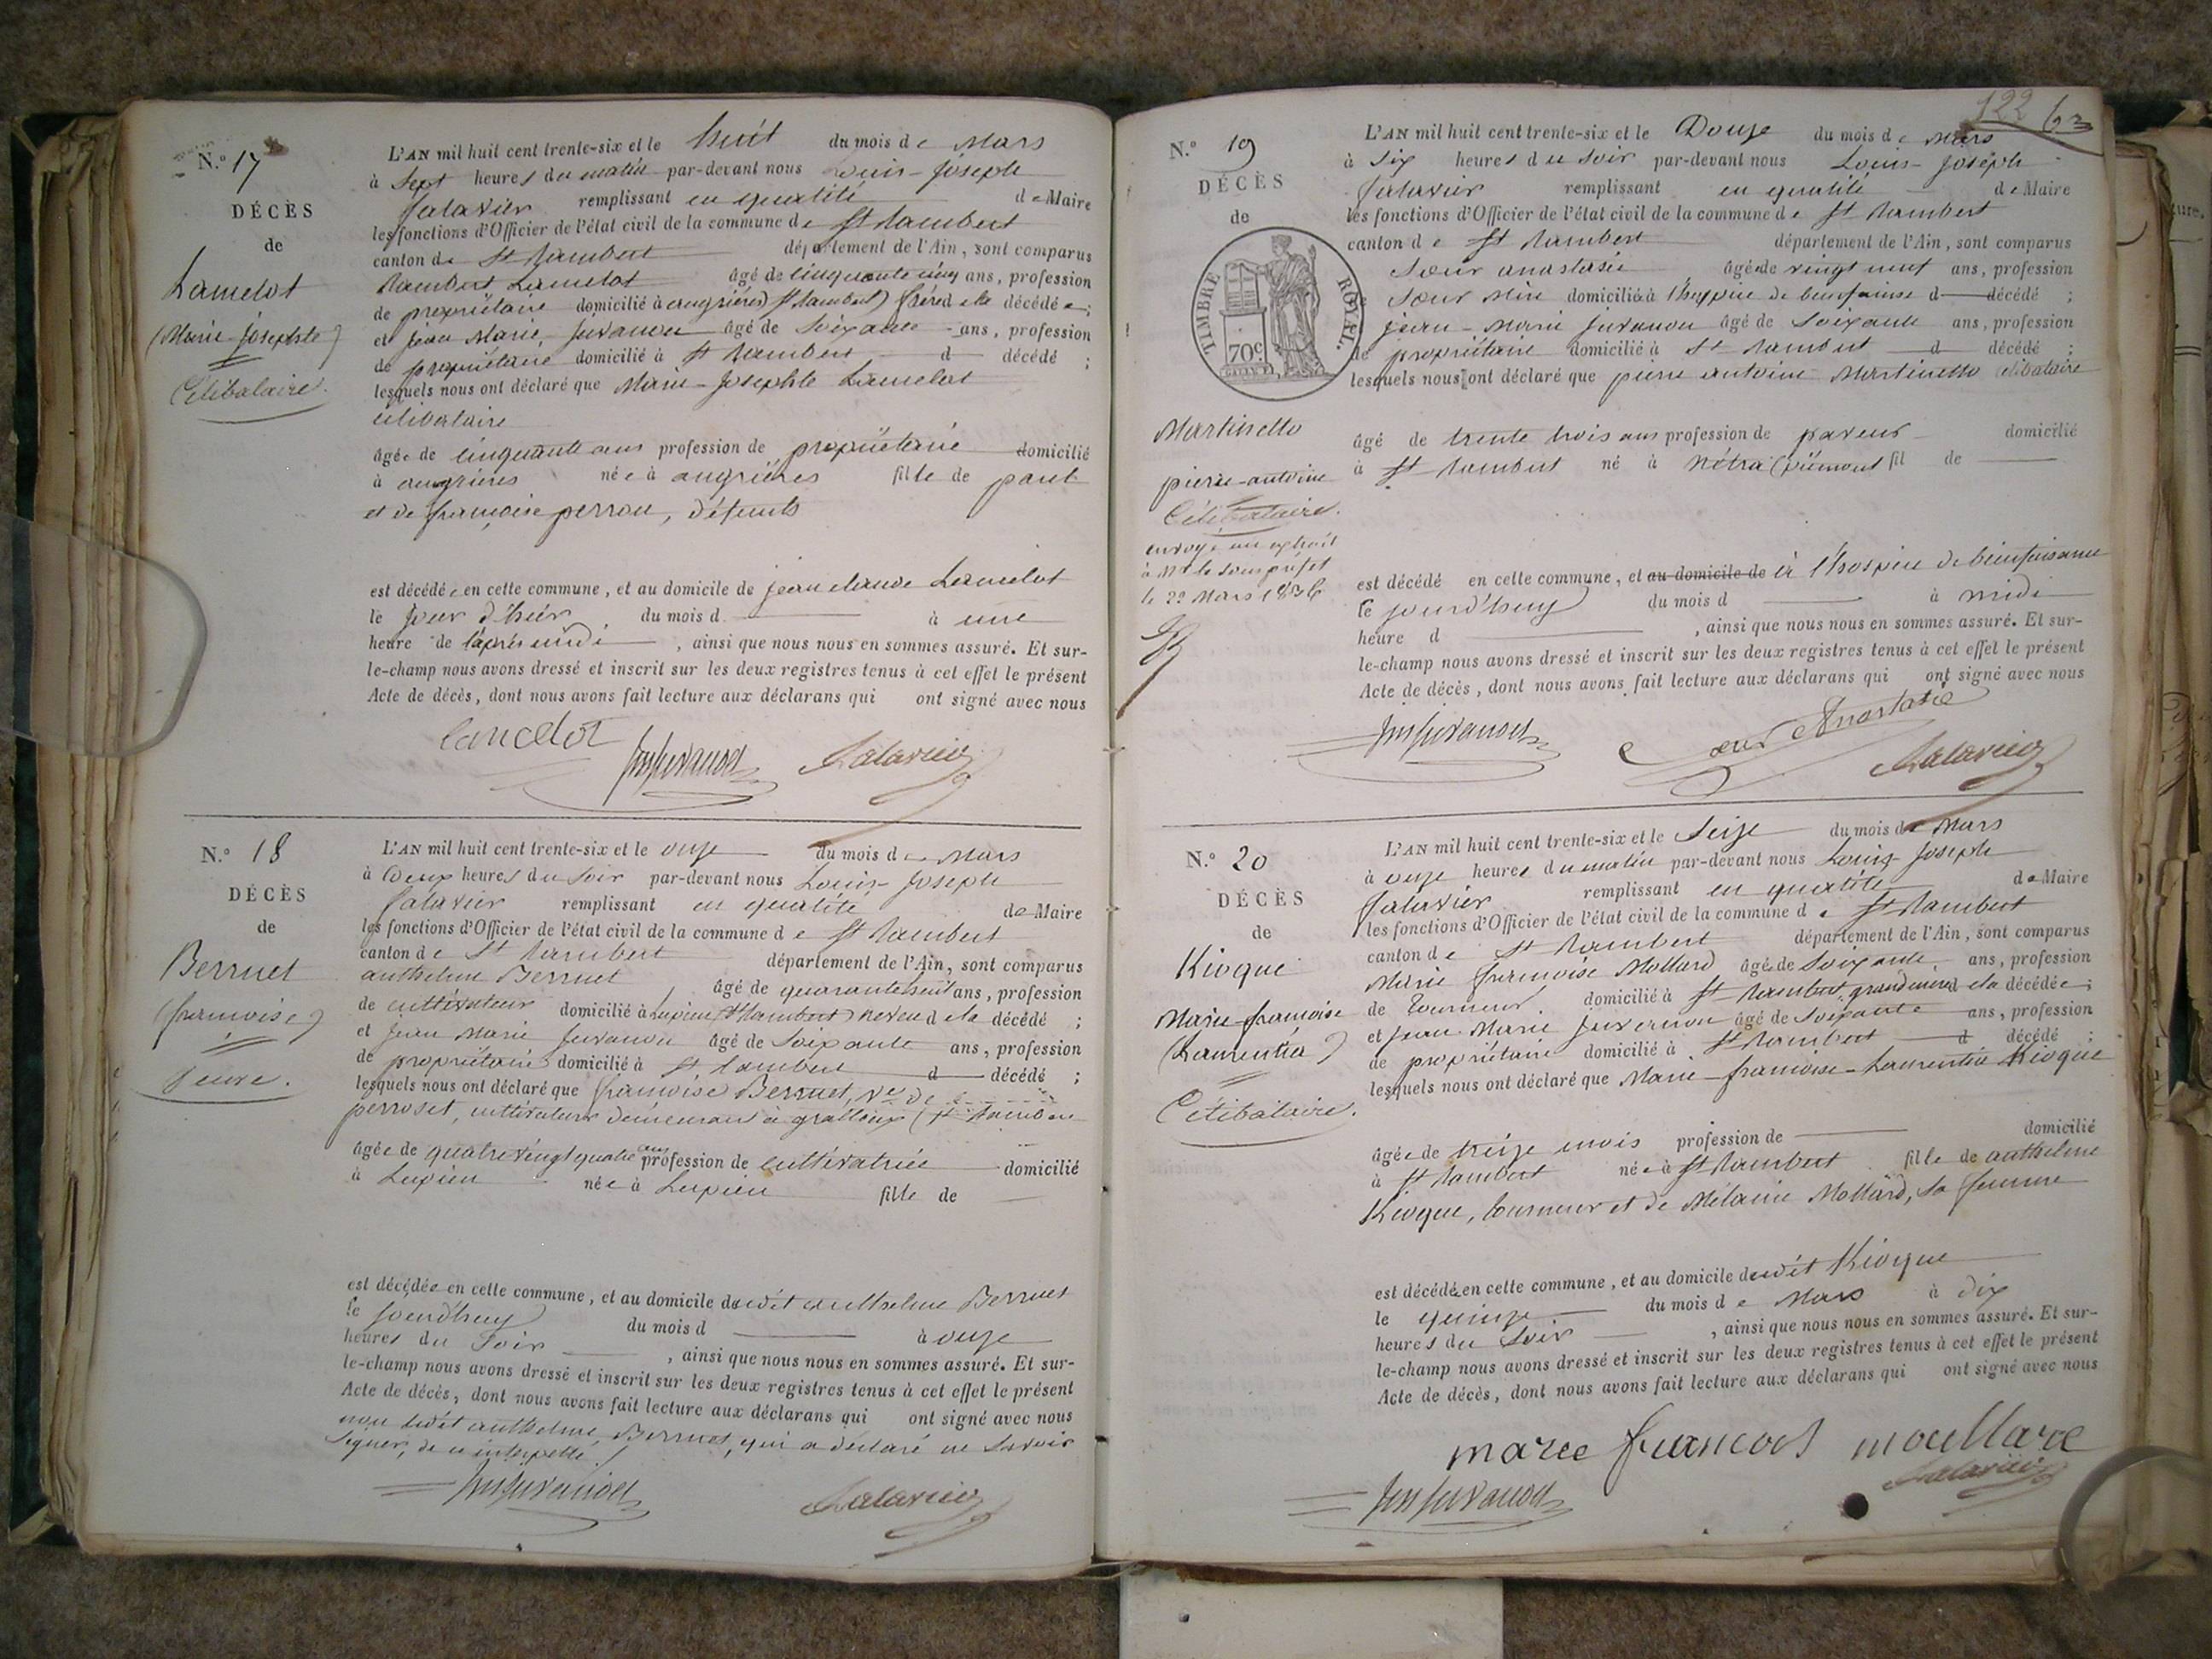 N.° 17
DÉCÈS
de
Lamelot
(Marie-Josephte)
Célibataire.
L'AN mil huit cent trente-six et le huit du mois de Mars
à Sept heures du matin par-devant nous Louis-Joseph
Falavier remplissant en qualité de Maire
les fonctions d'Officier de l'état civil de la commune de St Rambert
canton de St Rambert département de l'Ain, sont comparus
Rambert Lamelot âgé de cinquante cinq ans, profession
de propriétaire domicilié à angrières (St Rambert) frère de la décédée ;
et jean Marie Juvanon âgé de Soixante ans, profession
de propriétaire domicilié à St Rambert d décédé ;
lesquels nous ont déclaré que Marie-Josephte Lamelot
célibataire
âgée de cinquante ans profession de propriétaire domicilié
à angrières née à angrières fille de paul
et de françoise perron, défunts
est décédée en cette commune, et au domicile de jean claude Lamelot
le jour d'hier du mois d à une
heure de l'après midi, ainsi que nous nous en sommes assuré. Et sur-
le-champ nous avons dressé et inscrit sur les deux registres tenus à cet effet le présent
Acte de décès, dont nous avons fait lecture aux déclarans qui ont signé avec nous
Lancelot
N.° 18
DÉCÈS
de
Berruet
(françoise)
veuve.
L'AN mil huit cent trente-six et le onze du mois de Mars
à deux heures du soir par-devant nous Louis-Joseph
Falavier remplissant en qualité de Maire
les fonctions d'Officier de l'état civil de la commune de St Rambert
canton de St Rambert département de l'Ain, sont comparus
anthelme Berruet âgé de quarante huit ans, profession
de cultivateur domicilié à Lupieu (St Rambert) neveu de la décédé ;
et jean Marie Juvanon âgé de Soixante ans, profession
de propriétaire domicilié à St Rambert d décédé ;
lesquels nous ont déclaré que françoise Berruet, ve de
perroset, cultivateur demeurant à (St Rambert
âgée de quatre vingt quatre ans profession de cultivatrice domicilié
à Lupieu née à Lupieu fille de
est décédée en cette commune, et au domicile dudit anthelme Berruet
le jourd'huy du mois d à onze
heures du soir, ainsi que nous nous en sommes assuré. Et sur-
le-champ nous avons dressé et inscrit sur les deux registres tenus à cet effet le présent
Acte de décès, dont nous avons fait lecture aux déclarans qui ont signé avec nous
non ledit anthelme Berruet, qui a déclaré ne savoir
signer, de ce interpellé
122 63
N.° 19
DÉCÈS
de
TIMBRE ROYAL.
70c
Martinetto
pierre-antoine
Célibataire.
envoyé un extrait
à Mr le sous préfet
le 22 Mars 1836
L'AN mil huit cent trente-six et le Douze du mois de Mars
à Six heures du soir par-devant nous Louis-Joseph
Falavier remplissant en qualité de Maire
les fonctions d'Officier de l'état civil de la commune de St Rambert
canton de St Rambert département de l'Ain, sont comparus
Sœur anastasie âgée de vingt neuf ans, profession
Sœur domiciliée à l'hospice de bienfaisance d décédé ;
jean-Marie Juvanon âgé de Soixante ans, profession
de propriétaire domicilié à St Rambert d décédé ;
lesquels nous ont déclaré que pierre antoine Martinetto célibataire
âgé de trente trois ans profession de paveur domicilié
à St Rambert né à Nétra (piémont fil de
est décédé en cette commune, et au domicile de à l'hospice de bienfaisance
le jourd'huy du mois d à midi
heure d, ainsi que nous nous en sommes assuré. Et sur-
le-champ nous avons dressé et inscrit sur les deux registres tenus à cet effet le présent
Acte de décès, dont nous avons fait lecture aux déclarans qui ont signé avec nous
sœur Anastasie
N.° 20
DÉCÈS
de
Kioque
Marie françoise
(Laurentia)
Célibataire.
L'AN mil huit cent trente-six et le Seize du mois de Mars
à onze heures du matin par-devant nous Louis-Joseph
Falavier remplissant en qualité de Maire
les fonctions d'Officier de l'état civil de la commune de St Rambert
canton de St Rambert département de l'Ain, sont comparus
Marie françoise Mollard âgée de Soixante ans, profession
de tourneur domicilié à St Rambert, grand mère de la décédée ;
et Jean Marie Juvanon âgé de Soixante ans, profession
de propriétaire domicilié à St Rambert d décédé ;
lesquels nous ont déclaré que Marie-françoise-Laurentia Kioque
âgée de treize mois profession de domicilié
à St Rambert née à St Rambert fille de anthelme
Kioque, tourneur et de Mélanie Mollard, sa femme
est décédée en cette commune, et au domicile dudit Kioque
le quinze du mois de Mars à dix
heures du soir, ainsi que nous nous en sommes assuré. Et sur-
le-champ nous avons dressé et inscrit sur les deux registres tenus à cet effet le présent
Acte de décès, dont nous avons fait lecture aux déclarans qui ont signé avec nous
maree francois moullare